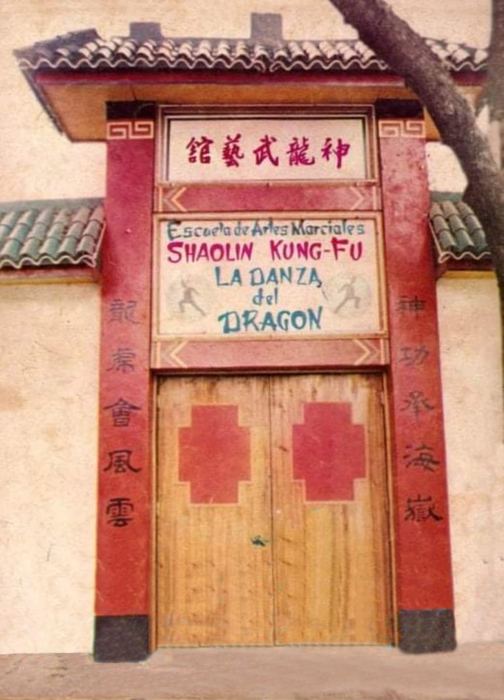 神龍武藝館
Escuela de Artes Marciales
SHAOLIN KUNG-FU
LA DANZA
del
DRAGON
神功承海嶽
龍虎會風雲